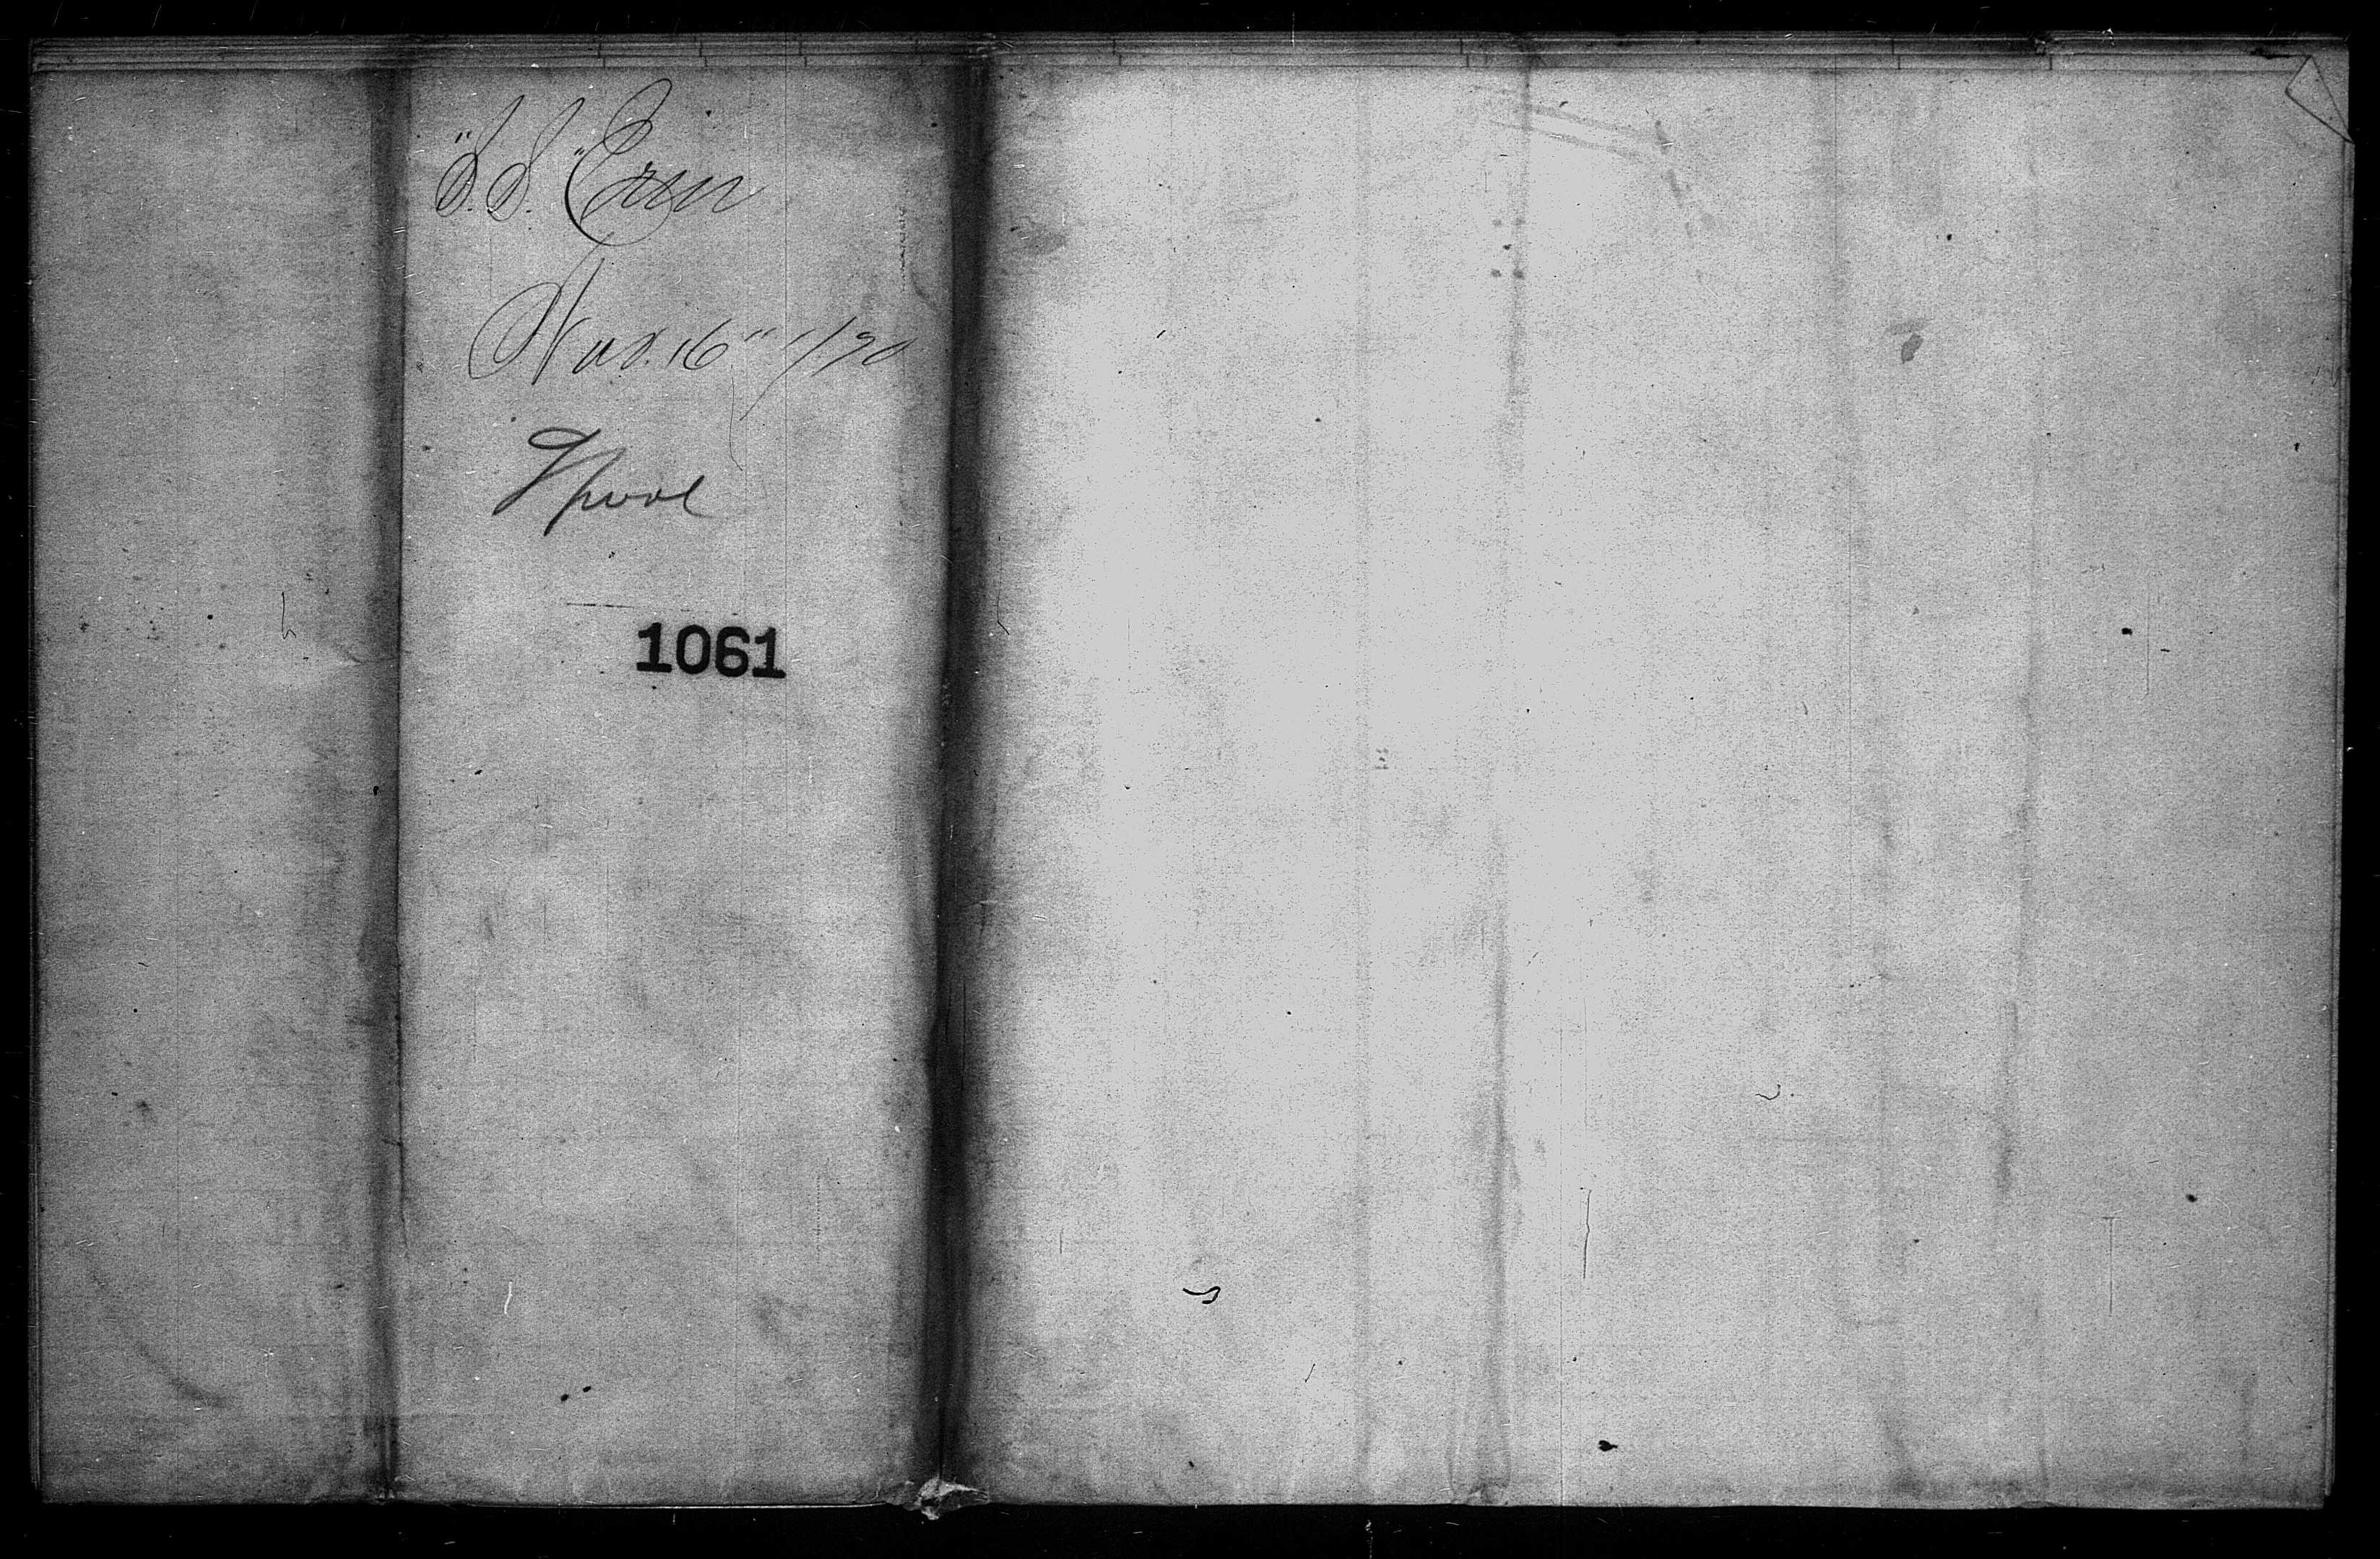 "S.S. "Erin
Nov. 16" 1/70
Lpool
1061